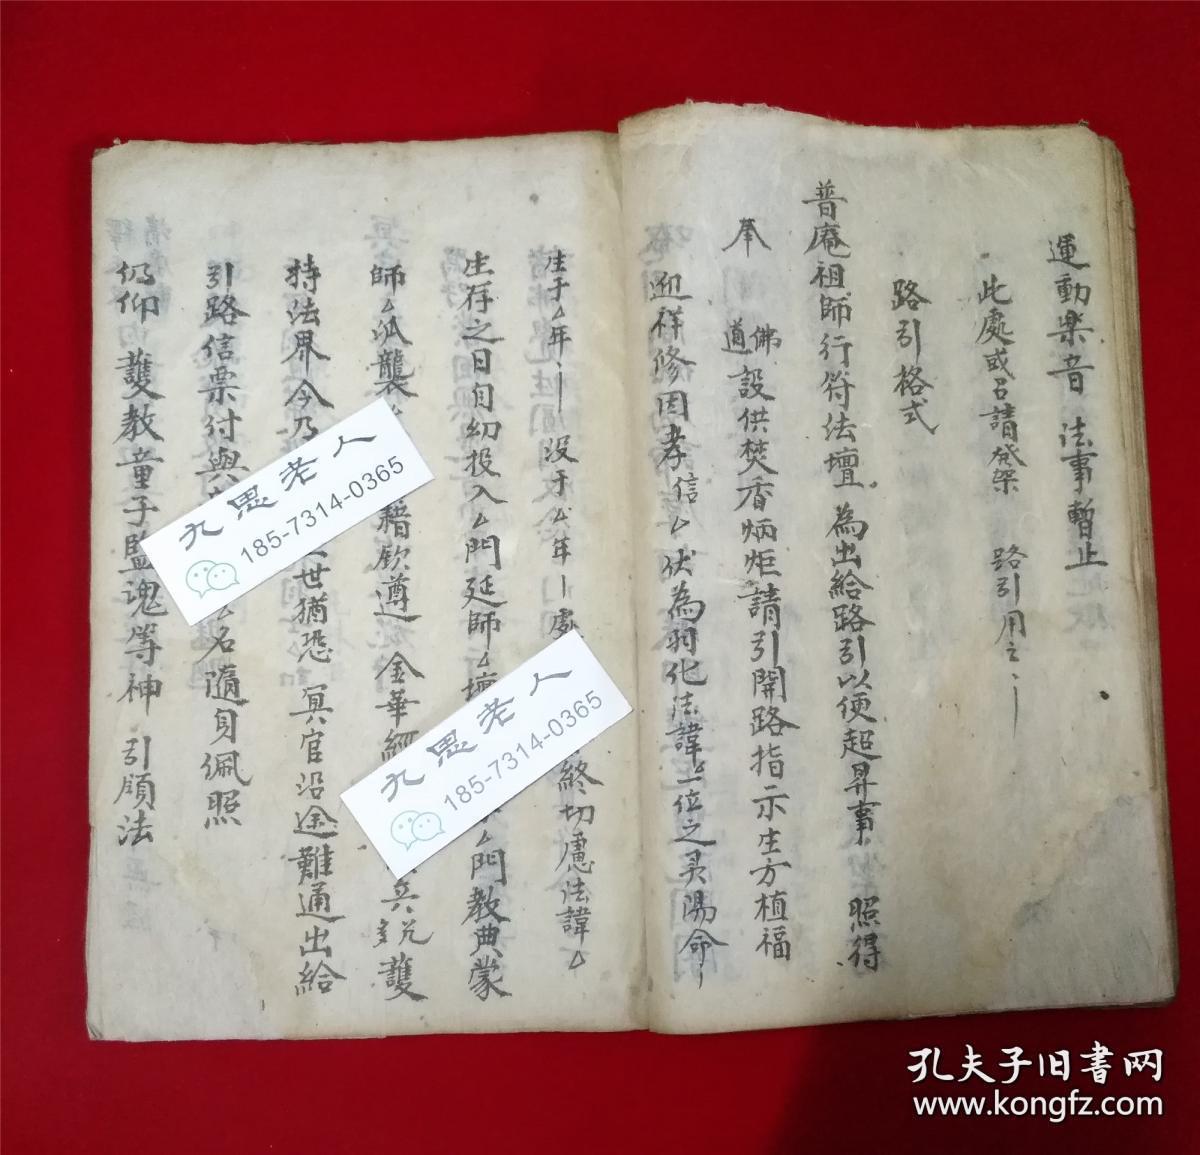 運動樂音 法事暫止
此處或召請發架 路引用之
路引格式
普庵祖師行符法壇 為出給路引以便超昇事 照得
奉
佛
道
設供焚香炳炬請引開路指示生方植福
迎祥修因孝信厶 伏為羽化法諱厶位之灵陽命
生于厶年 没于厶年 處 終切慮法諱厶
生存之日自幼投入厶門延師厶壇 厶門教典蒙
師厶派襲 籍欽遵 金華經 兵 護
持法界今乃 世猶恐 冥官沿途難通出給
引路信票付與 名隨身佩照
仍仰 護教童子監魂等神 引領法
九思老人
185-7314-0365
九思老人
185-7314-0365
孔夫子旧书网
www.kongfz.com